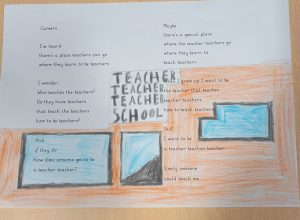 Careers
I've heard
there's a place teachers can go
where they learn to be teachers.
I wonder
Who teaches the teachers?
Do they have teachers
that teach the teachers
how to be teachers?
And
if they do
How does someone get to be
a teacher teacher?
TEACHER,
TEACHER
TEACHER
SCHOOL
Maybe
there's a special place
where the teacher teachers go
where they learn to
teach teachers
grow up I want to
teacher that teacher
teacher teachers
how to teach teachers
Yes!
I want to be
a teacher teacher teacher.
If only someone
could teach me.